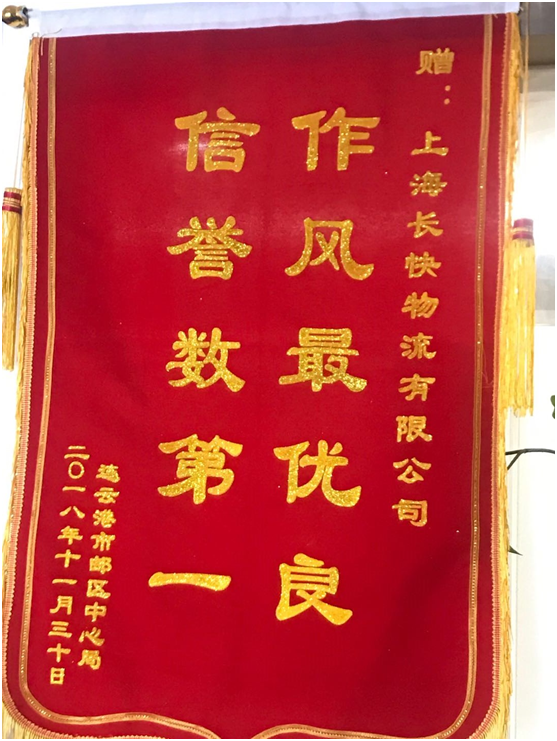 赠：上海长快物流有限公司
作风最优良
信誉数第一
连云港市邮区中心局
二〇一八年十一月三十日